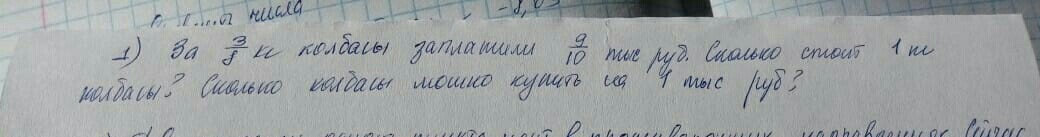 числа
1) За 3/8 кг колбасы заплатили 9/10 тыс руб. Сколько стоит 1 кг
колбасы? Сколько колбасы можно купить на 1 тыс руб?